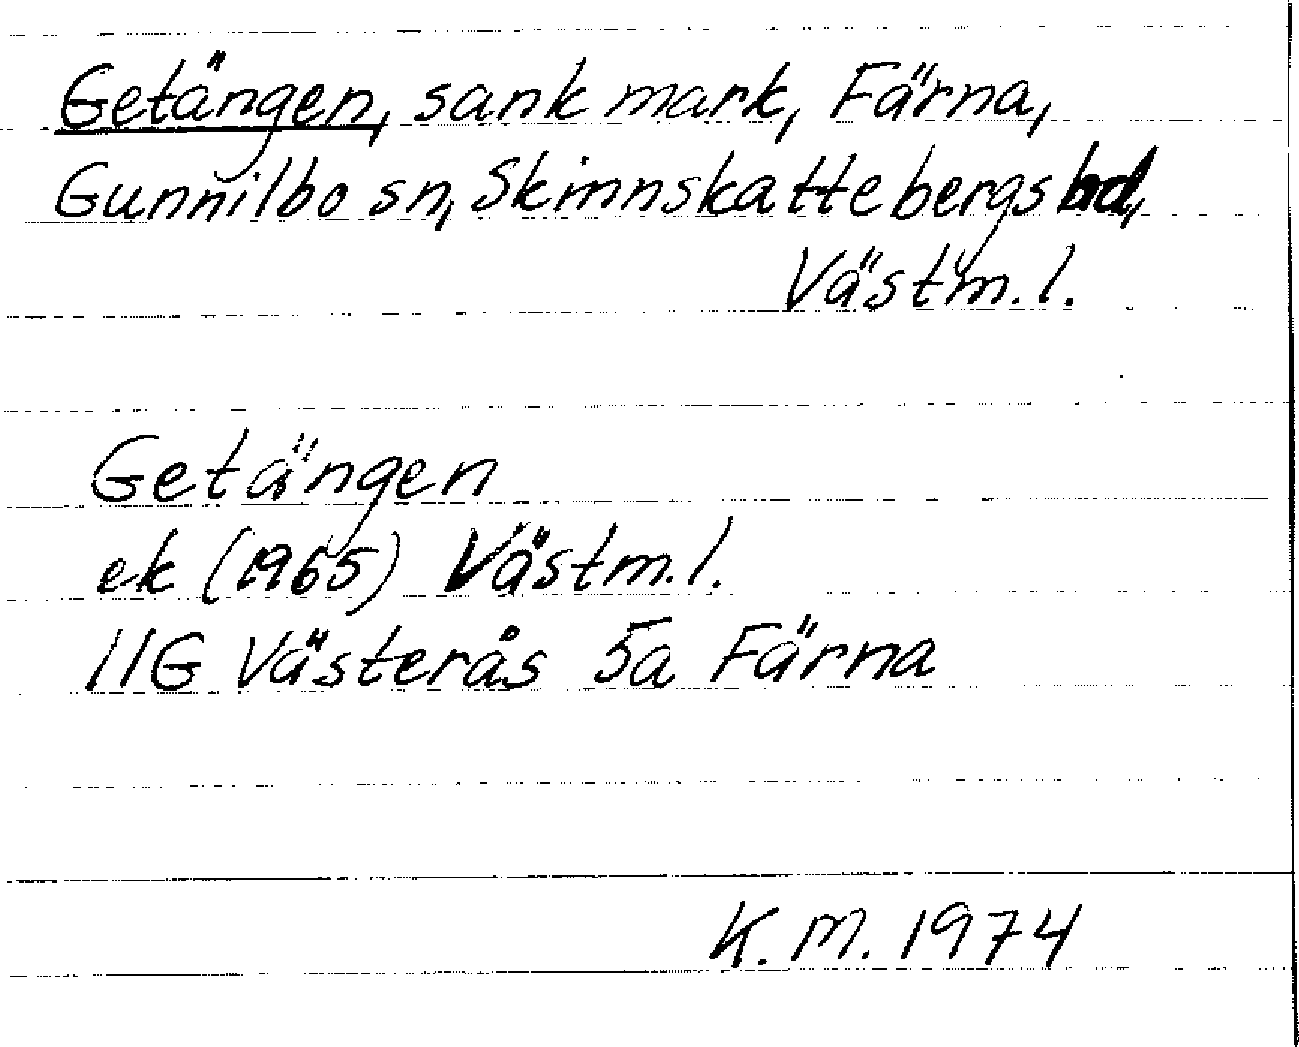 Getängen, sank mark, Färna,
Gunnilbo sn, Skinnskattebergs hd,
Västm. l.
Getängen
ek (1965) Västm. l.
11G Västerås 5a Färna
K. M. 1974